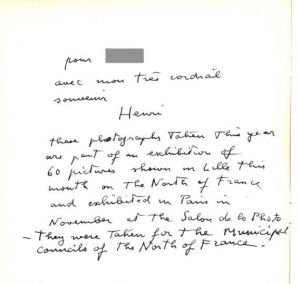 pour
avec mon très cordial
souvenir
Henri
these photographs taken this year
are part of an exhibition of
60 pictures shown in Lille this
month on the North of France
and exhibited in Paris in
November at the Salon de la Photo
— They were taken for the Municipal
Councils of the North of France.